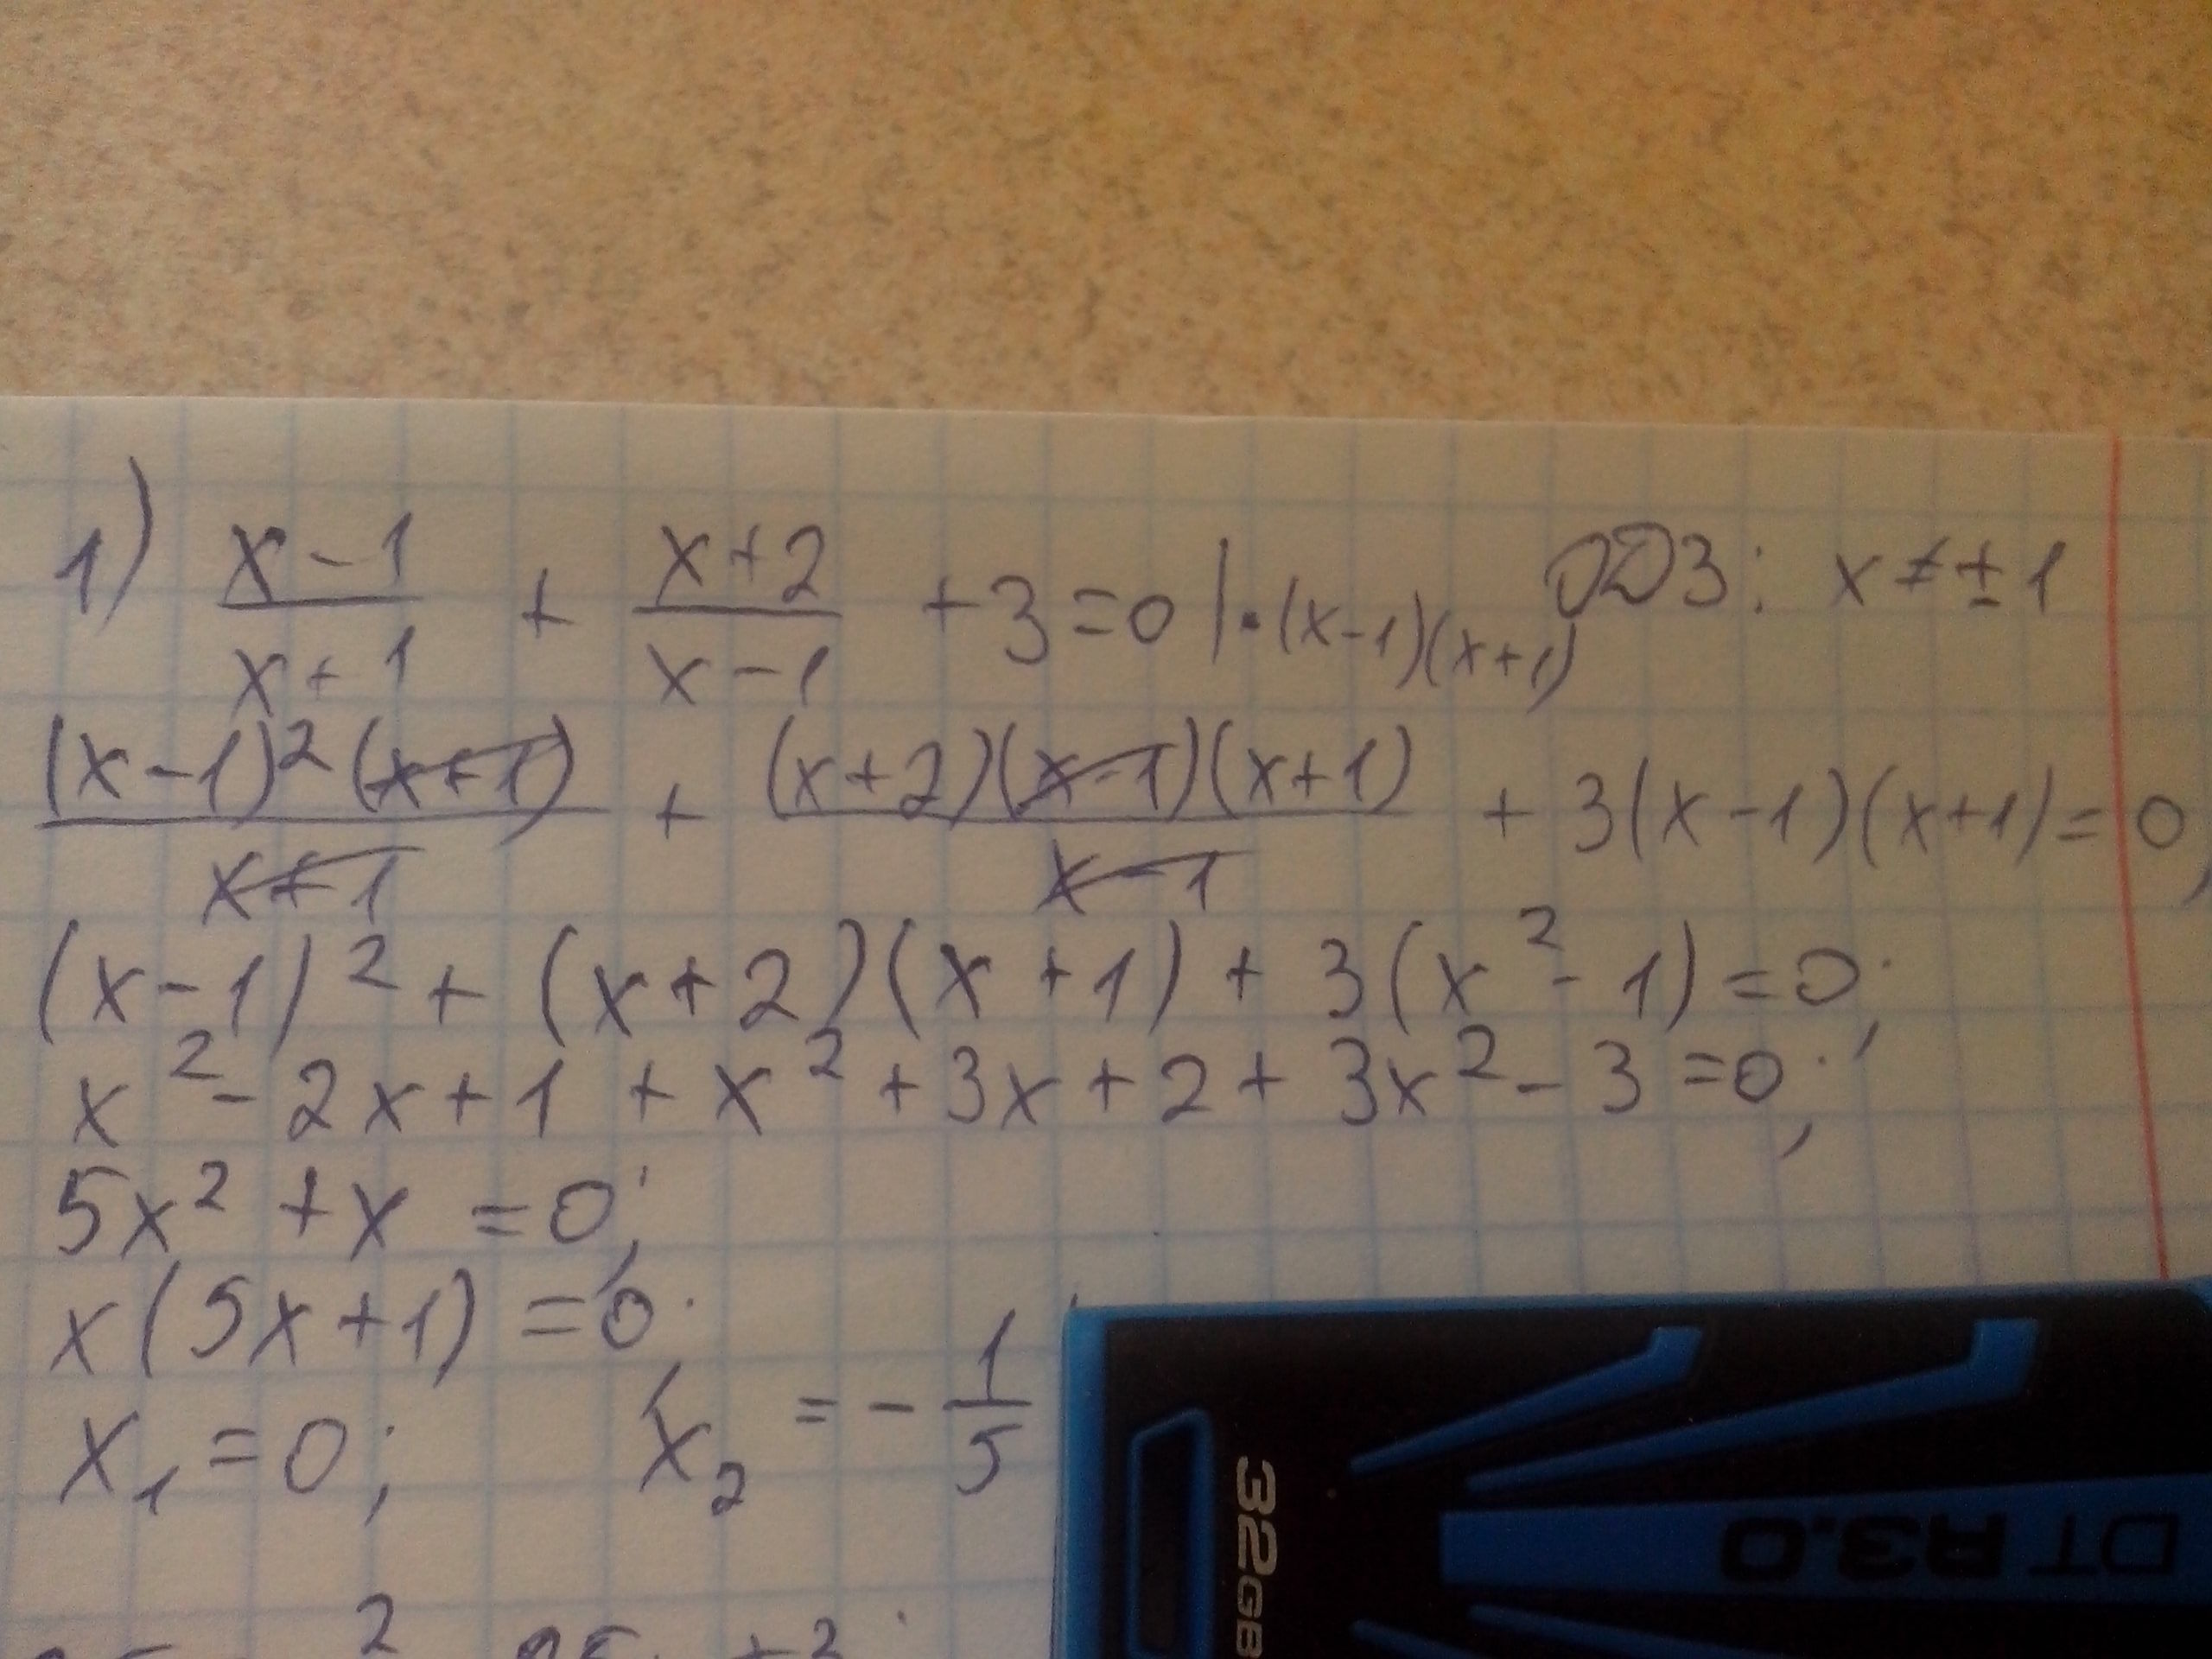 1) (x-1)/(x+1) + (x+2)/(x-1) +3=0 |·(x-1)(x+1) ОДЗ: x≠±1
(x-1)²(x+1)/(x+1) + (x+2)(x-1)(x+1)/(x-1) + 3(x-1)(x+1)=0;
(x-1)² + (x+2)(x+1) + 3(x²-1)=0;
x²-2x+1+x²+3x+2+3x²-3=0;
5x²+x=0;
x(5x+1)=0;
x₁=0; x₂=-1/5
32GB
DT R3.0